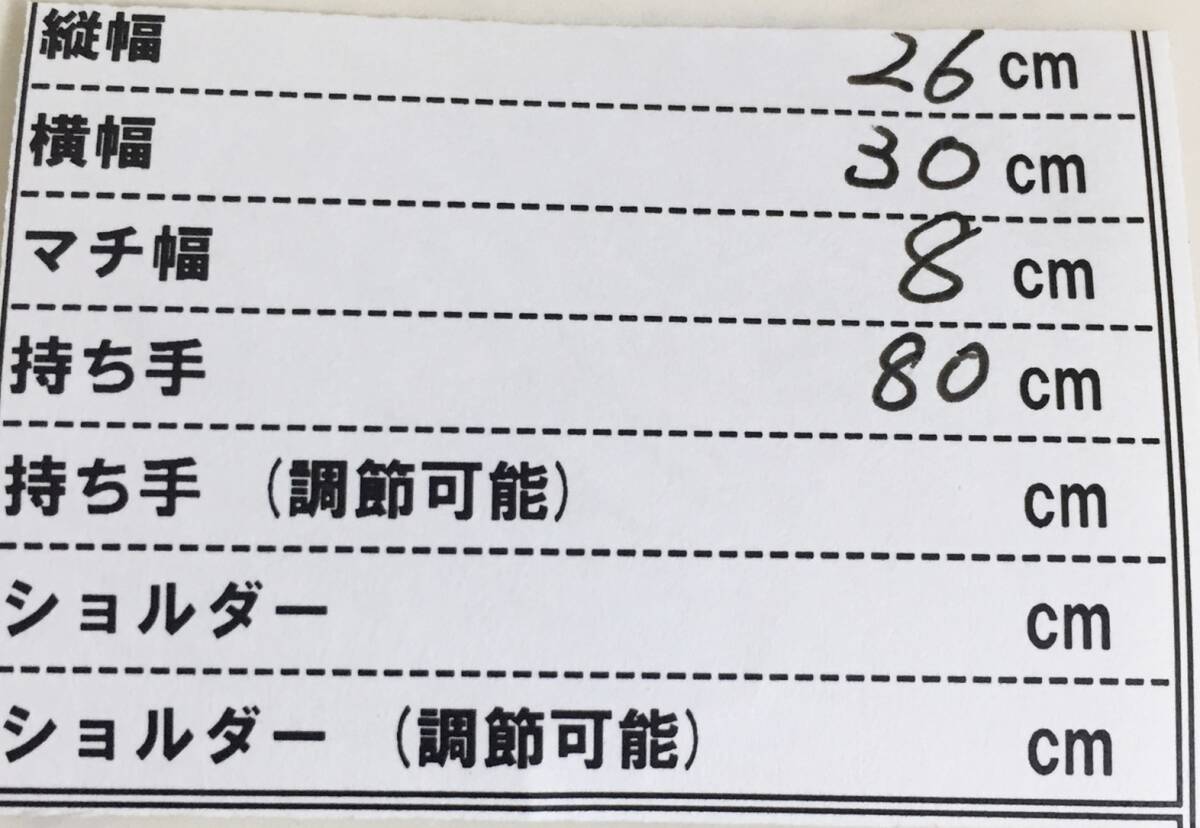 縦幅 26 cm
横幅 30 cm
マチ幅 8 cm
持ち手 80 cm
持ち手 (調節可能) cm
ショルダー cm
ショルダー (調節可能) cm